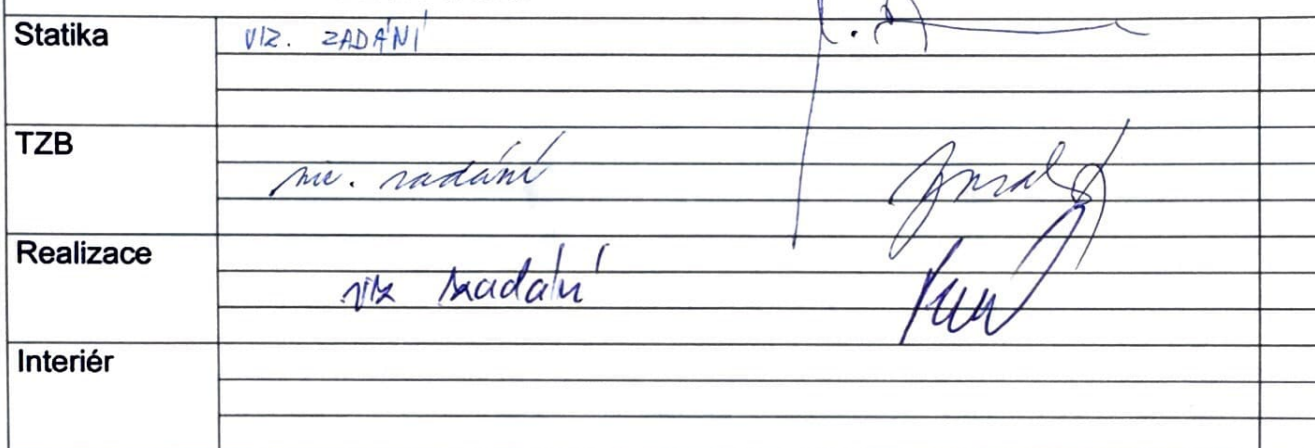 Statika VIZ. ZADÁNÍ
TZB viz. zadání
Realizace viz zadání
Interiér